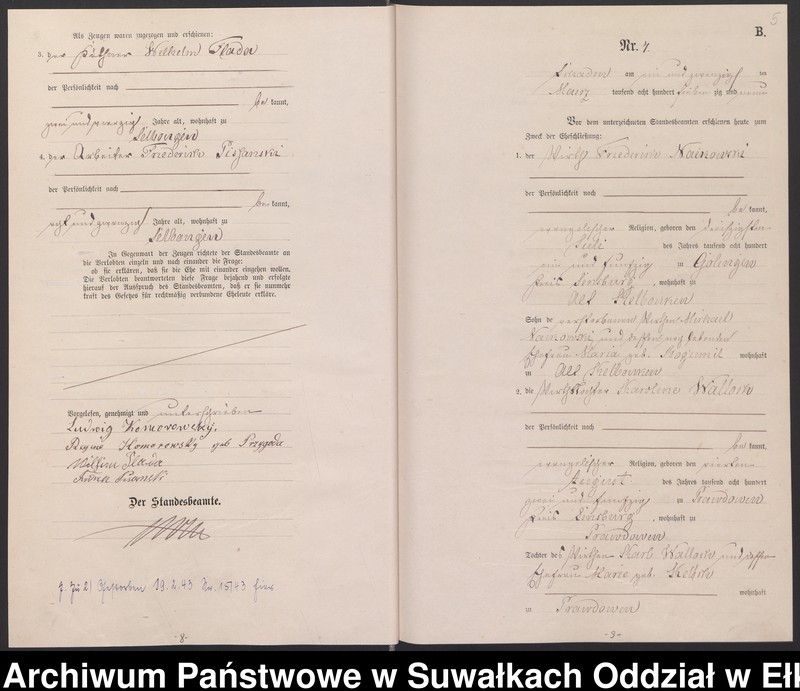 Als Zeugen waren zugezogen und erschienen:
3. der Wilhelm Flada
der Persönlichkeit nach
be kannt,
zwei und zwanzig Jahre alt, wohnhaft zu
Selbongen
4. der Arbeiter Friedrich
der Persönlichkeit nach
be kannt,
acht und zwanzig Jahre alt, wohnhaft zu
Selbongen
In Gegenwart der Zeugen richtete der Standesbeamte an
die Verlobten einzeln und nach einander die Frage:
ob sie erklären, daß sie die Ehe mit einander eingehen wollen.
Die Verlobten beantworteten diese Frage bejahend und erfolgte
hierauf der Ausspruch des Standesbeamten, daß er sie nunmehr
kraft des Gesetzes für rechtmäßig verbundene Eheleute erkläre.
Vorgelesen, genehmigt und unterschrieben
Ludwig Komorowsky.
Regine Komorowsky geb Przygoda
Wilhelm Flada
Der Standesbeamte.
Gestorben 19.2.43 Nr. 15/43 hier
-8-
5
B.
Nr. 4.
am ein und zwanzigsten
März tausend acht hundert sieben zig und neun
Vor dem unterzeichneten Standesbeamten erschienen heute zum
Zweck der Eheschließung:
1. der Wirth Friedrich Nainowski
der Persönlichkeit nach
be kannt,
evangelischer Religion, geboren den dreißigsten
Juli des Jahres tausend acht hundert
ein und funfzig zu
Kreis Sensburg, wohnhaft zu
Alt Kelbonken
Sohn de verstorbenen Wirthen Michael
Nainowski und dessen
Ehefrau Maria geb. Bogumil wohnhaft
in Alt Kelbonken
2. die Wirthstochter Karoline Wallow
der Persönlichkeit nach
be kannt,
evangelischer Religion, geboren den vierten
August des Jahres tausend acht hundert
zwei und funfzig zu Prawdowen
Kreis Sensburg, wohnhaft zu
Prawdowen
Tochter des Wirthen Karl Wallow und dessen
Ehefrau Marie geb.
wohnhaft
in Prawdowen
-9-
Archiwum Państwowe w Suwałkach Oddział w Eł